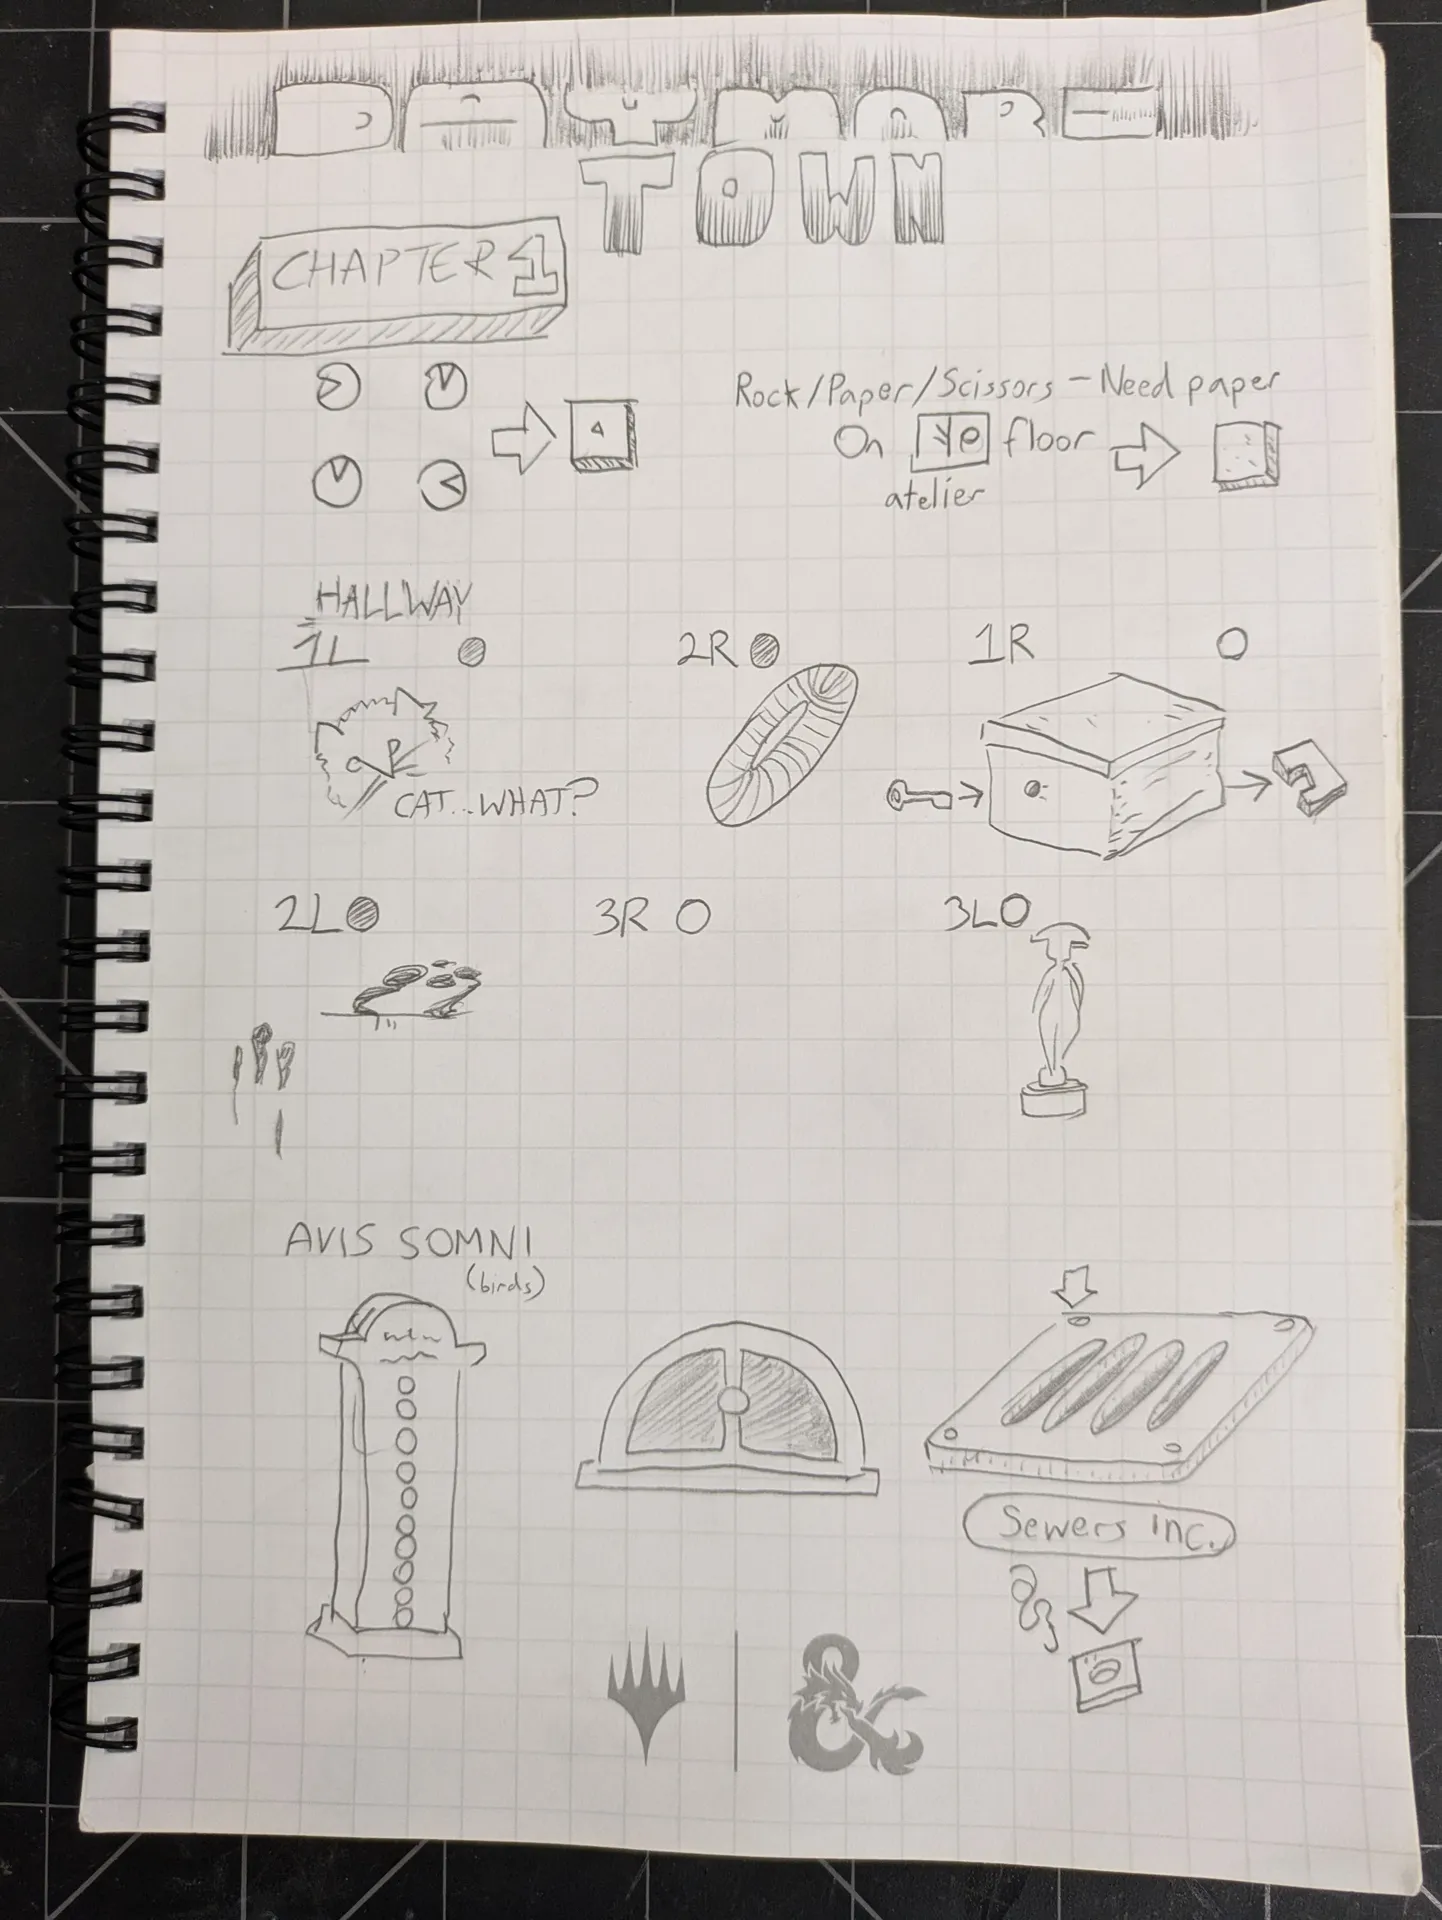 DAYMARE
TOWN
CHAPTER 1
Rock/Paper/Scissors - Need paper
On floor
atelier
HALLWAY
1L 2R 1R
CAT...WHAT?
2L 3R 3L
AVIS SOMNI
(birds)
Sewers inc.